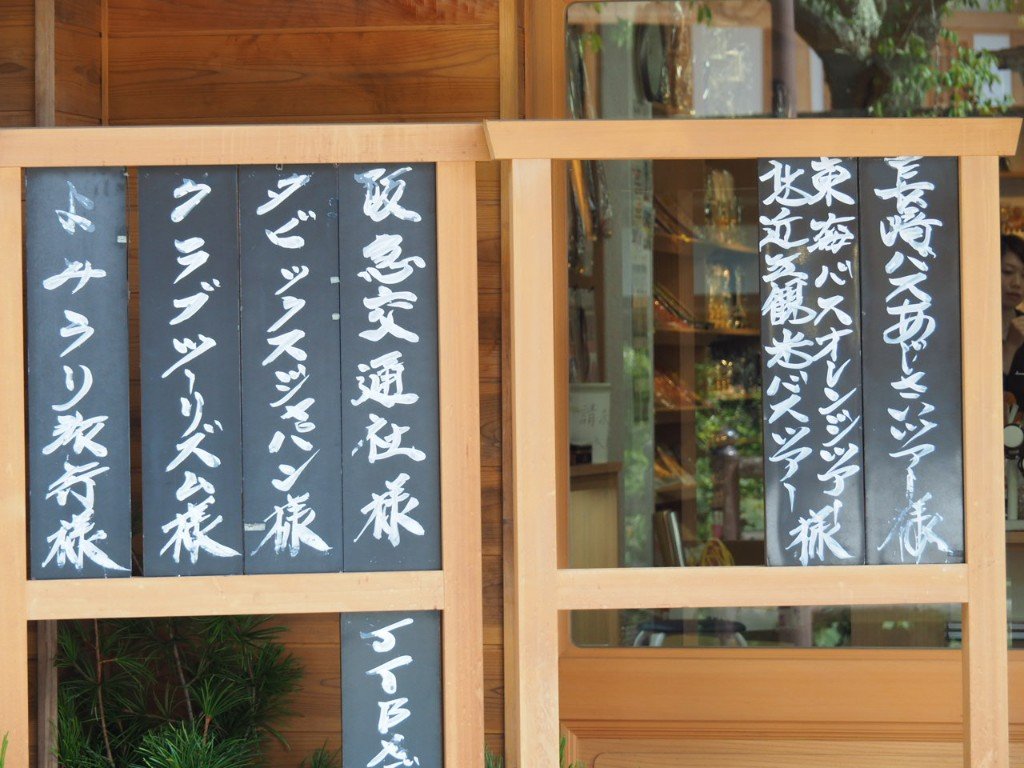 長崎バスあじさいツアー様
東海バスオレンジツアー
北近江観光バスツアー 様
阪急交通社様
タビックスジャパン様
クラブツーリズム様
よみうり旅行様
JTB